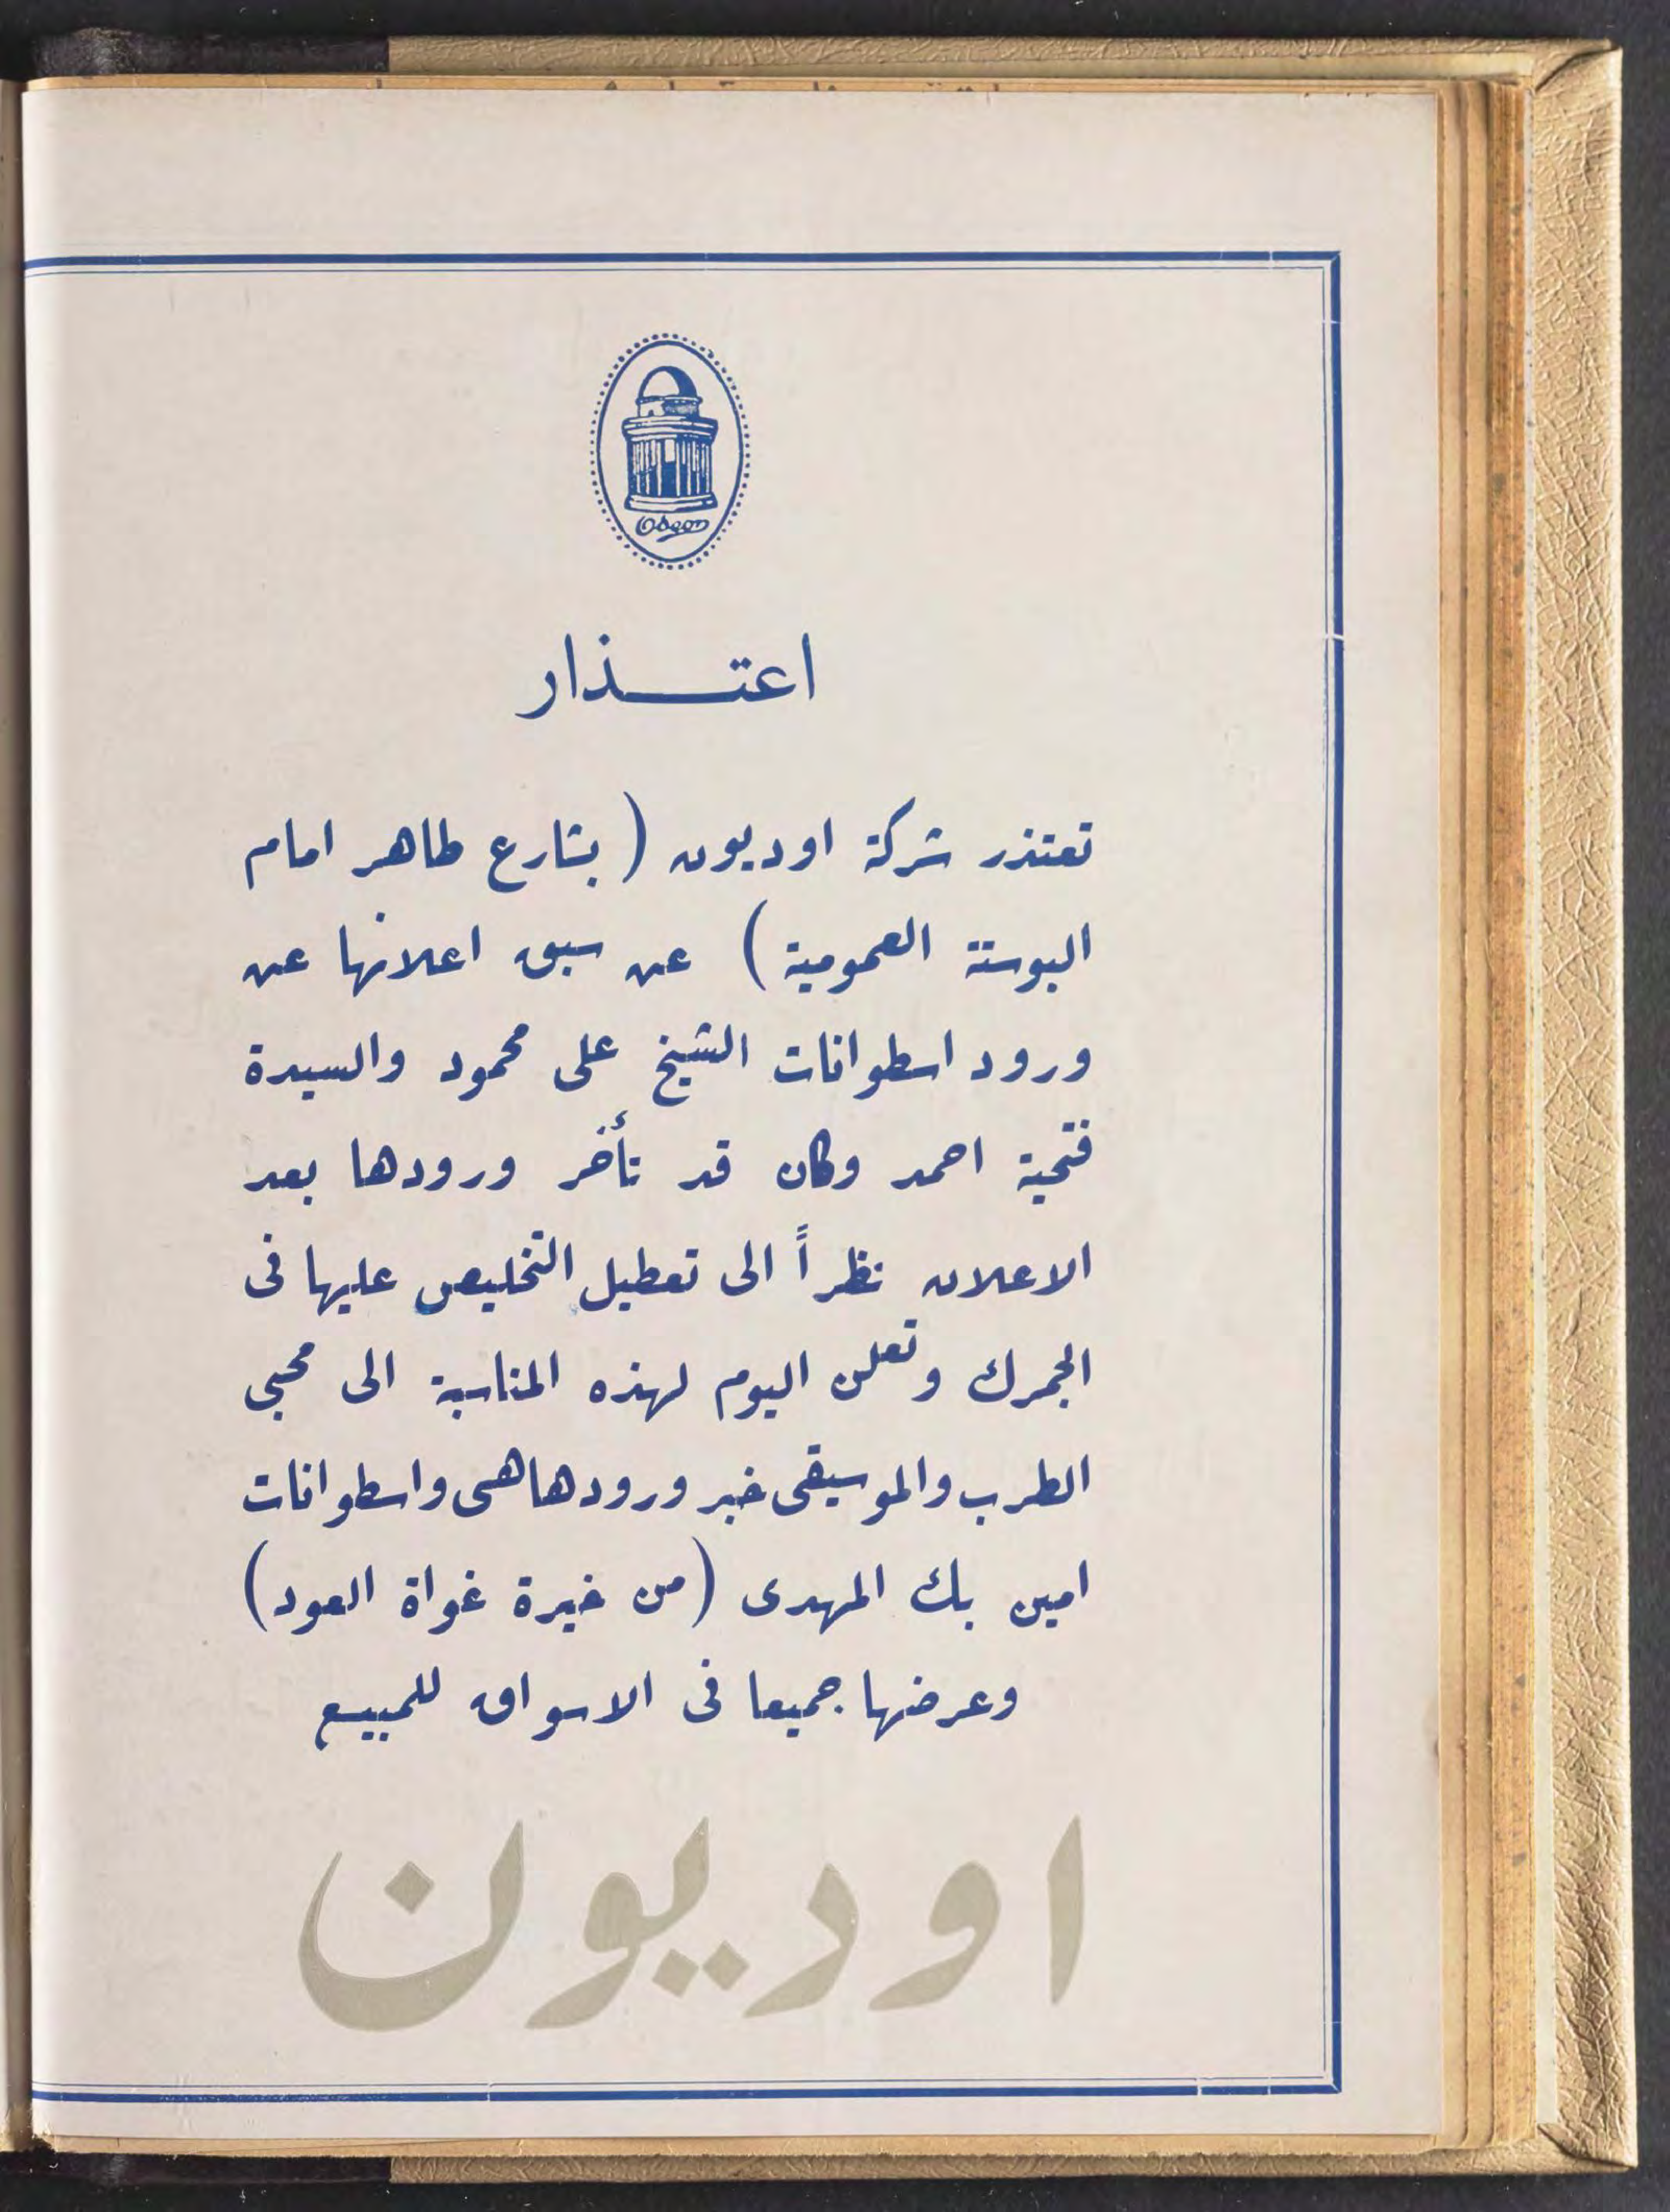 Odeon
اعتـــذار
تعتذر شركة اوديون ( بشارع طاهر امام
البوستة العمومية ) عن سبق اعلانها عن
ورود اسطوانات الشيخ على محمود والسيدة
فتحية احمد وكان قد تأخر ورودها بعد
الاعلان نظراً الى تعطيل التخليص عليها فى
الجمرك وتعلن اليوم لهذه المناسبة الى محبى
الطرب والموسيقى خبر ورودها هى واسطوانات
امين بك المهدى ( من خيرة غواة العود )
وعرضها جميعا فى الاسواق للمبيع
اوديون